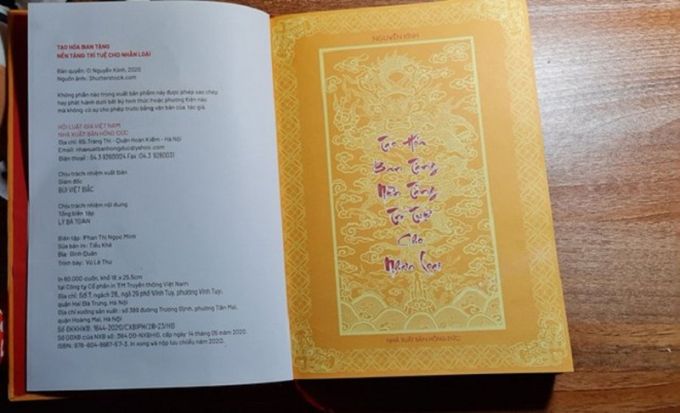 TẠO HÓA BAN TẶNG
NỀN TẢNG TRÍ TUỆ CHO NHÂN LOẠI
Bản quyền: © Nguyễn Kính, 2020
Nguồn ảnh: Shutterstock.com
Không phần nào trong xuất bản phẩm này được phép sao chép
hay phát hành dưới bất kỳ hình thức hoặc phương tiện nào
mà không có sự cho phép trước bằng văn bản của, tác giả.
HỘI LUẬT GIA VIỆT NAM
NHÀ XUẤT BẢN HỒNG ĐỨC
Địa chỉ: 65 Tràng Thi - Quận Hoàn Kiếm - Hà Nội
Email: nhaxuatbanhongduc@yahoo.com
Điện thoại : 04.3 9260024 Fax :04.3 9260031
Chịu trách nhiệm xuất bản
Giám đốc
BÙI VIỆT BẮC
Chịu trách nhiệm nội dung
Tổng biên tập
LÝ BÁ TOÀN
Biên tập: Phan Thị Ngọc Minh
Sửa bản in: Tiểu Khê
Bìa: Đình Quân
Trình bày: Vũ Lê Thư
In 60.000 cuốn, khổ 18 x 25,5cm
tại Công ty Cổ phần in TM Truyền thông Việt Nam
Địa chỉ: Số 7, ngách 28, ngõ 29 phố Vĩnh Tuy, phường Vĩnh Tuy,
quận Hai Bà Trưng, Hà Nội
Địa chỉ xưởng sản xuất : số 389 đường Trương Định, phường Tân Mai,
quận Hoàng Mai, Hà Nội
Số ĐKKHXB: 1644-2020/CXBIPH/28-23/HĐ
Số QĐXB của NXB số: 364 QĐ-NXBHĐ, cấp ngày 14 tháng 05 năm 2020.
ISBN: 978-604-9987-57-3. In xong và nộp lưu chiểu năm 2020.
NGUYỄN KÍNH
Tạo Hóa
Ban Tặng
Nền Tảng
Trí Tuệ
Cho
Nhân Loại
NHÀ XUẤT BẢN HỒNG ĐỨC